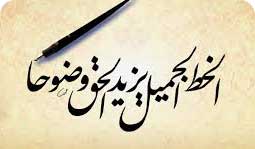 الخط الجميل يزيد الحق وضوحا